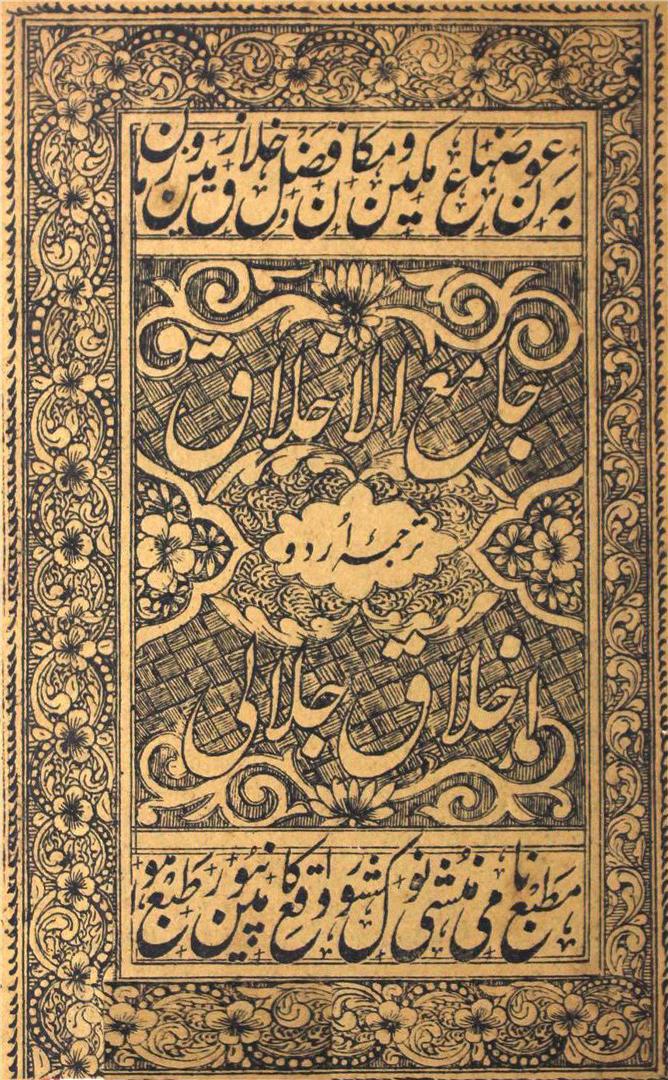 بعون صناع مکین و مکان و فضل خلاق زمین و زمان
جامع الاخلاق
ترجمۂ اُردو
اخلاق جلالی
مطبع نامی منشی نولکشور واقع کانپور میں طبع ہوا